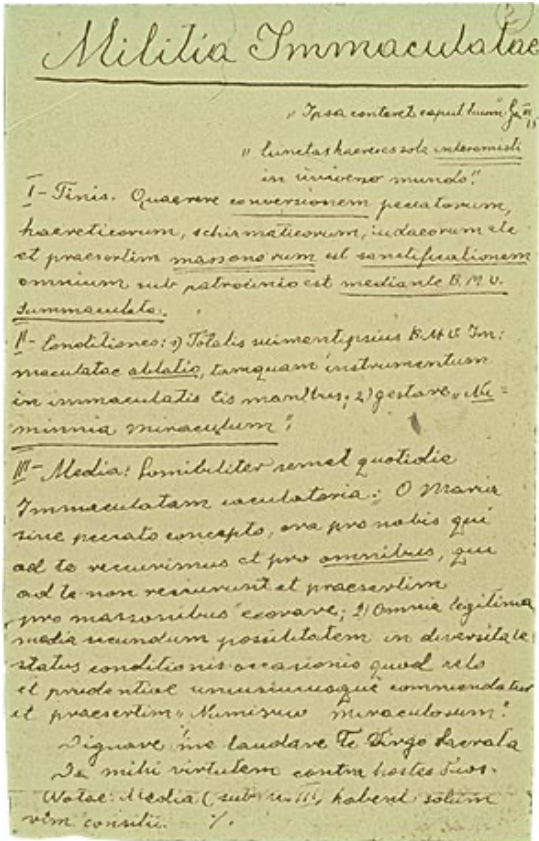 2
Militia Immaculatae
"Ipsa conteret caput tuum" Gn III 15
"Cunctas haereses sola interemisti
in universo mundo".
I - Finis. Quaerere conversionem peccatorum,
haereticorum, schismaticorum, iudaeorum etc
et praesertim massonorum et sanctificationem
omnium sub patrocinio et mediante B.M.V.
Immaculata.
II - Conditiones: 1) Totalis suimentipsius B.M.V. Im=
maculatae oblatio, tamquam instrumentum
in immaculatis Eius manibus; 2) gestare "Nu=
misma miraculosum".
III - Media: semel quotidie
Immaculatam iaculatoria: "O Maria
sine peccato concepta, ora pro nobis qui
ad te recurrimus et pro omnibus, qui
ad te non recurrunt et praesertim
pro massonibus" exorare; 2) Omnia legitima
media secundum possibilitatem in diversitate
status conditionis occasionis quod zelo
et prudentiae uniuscuiusque commendatur
et praesertim "Numisma miraculosum".
Dignare me laudare Te Virgo Sacrata
Da mihi virtutem contra hostes Tuos.
Notae: Media (sub n. III) habent solum
vim consilii. ·/.